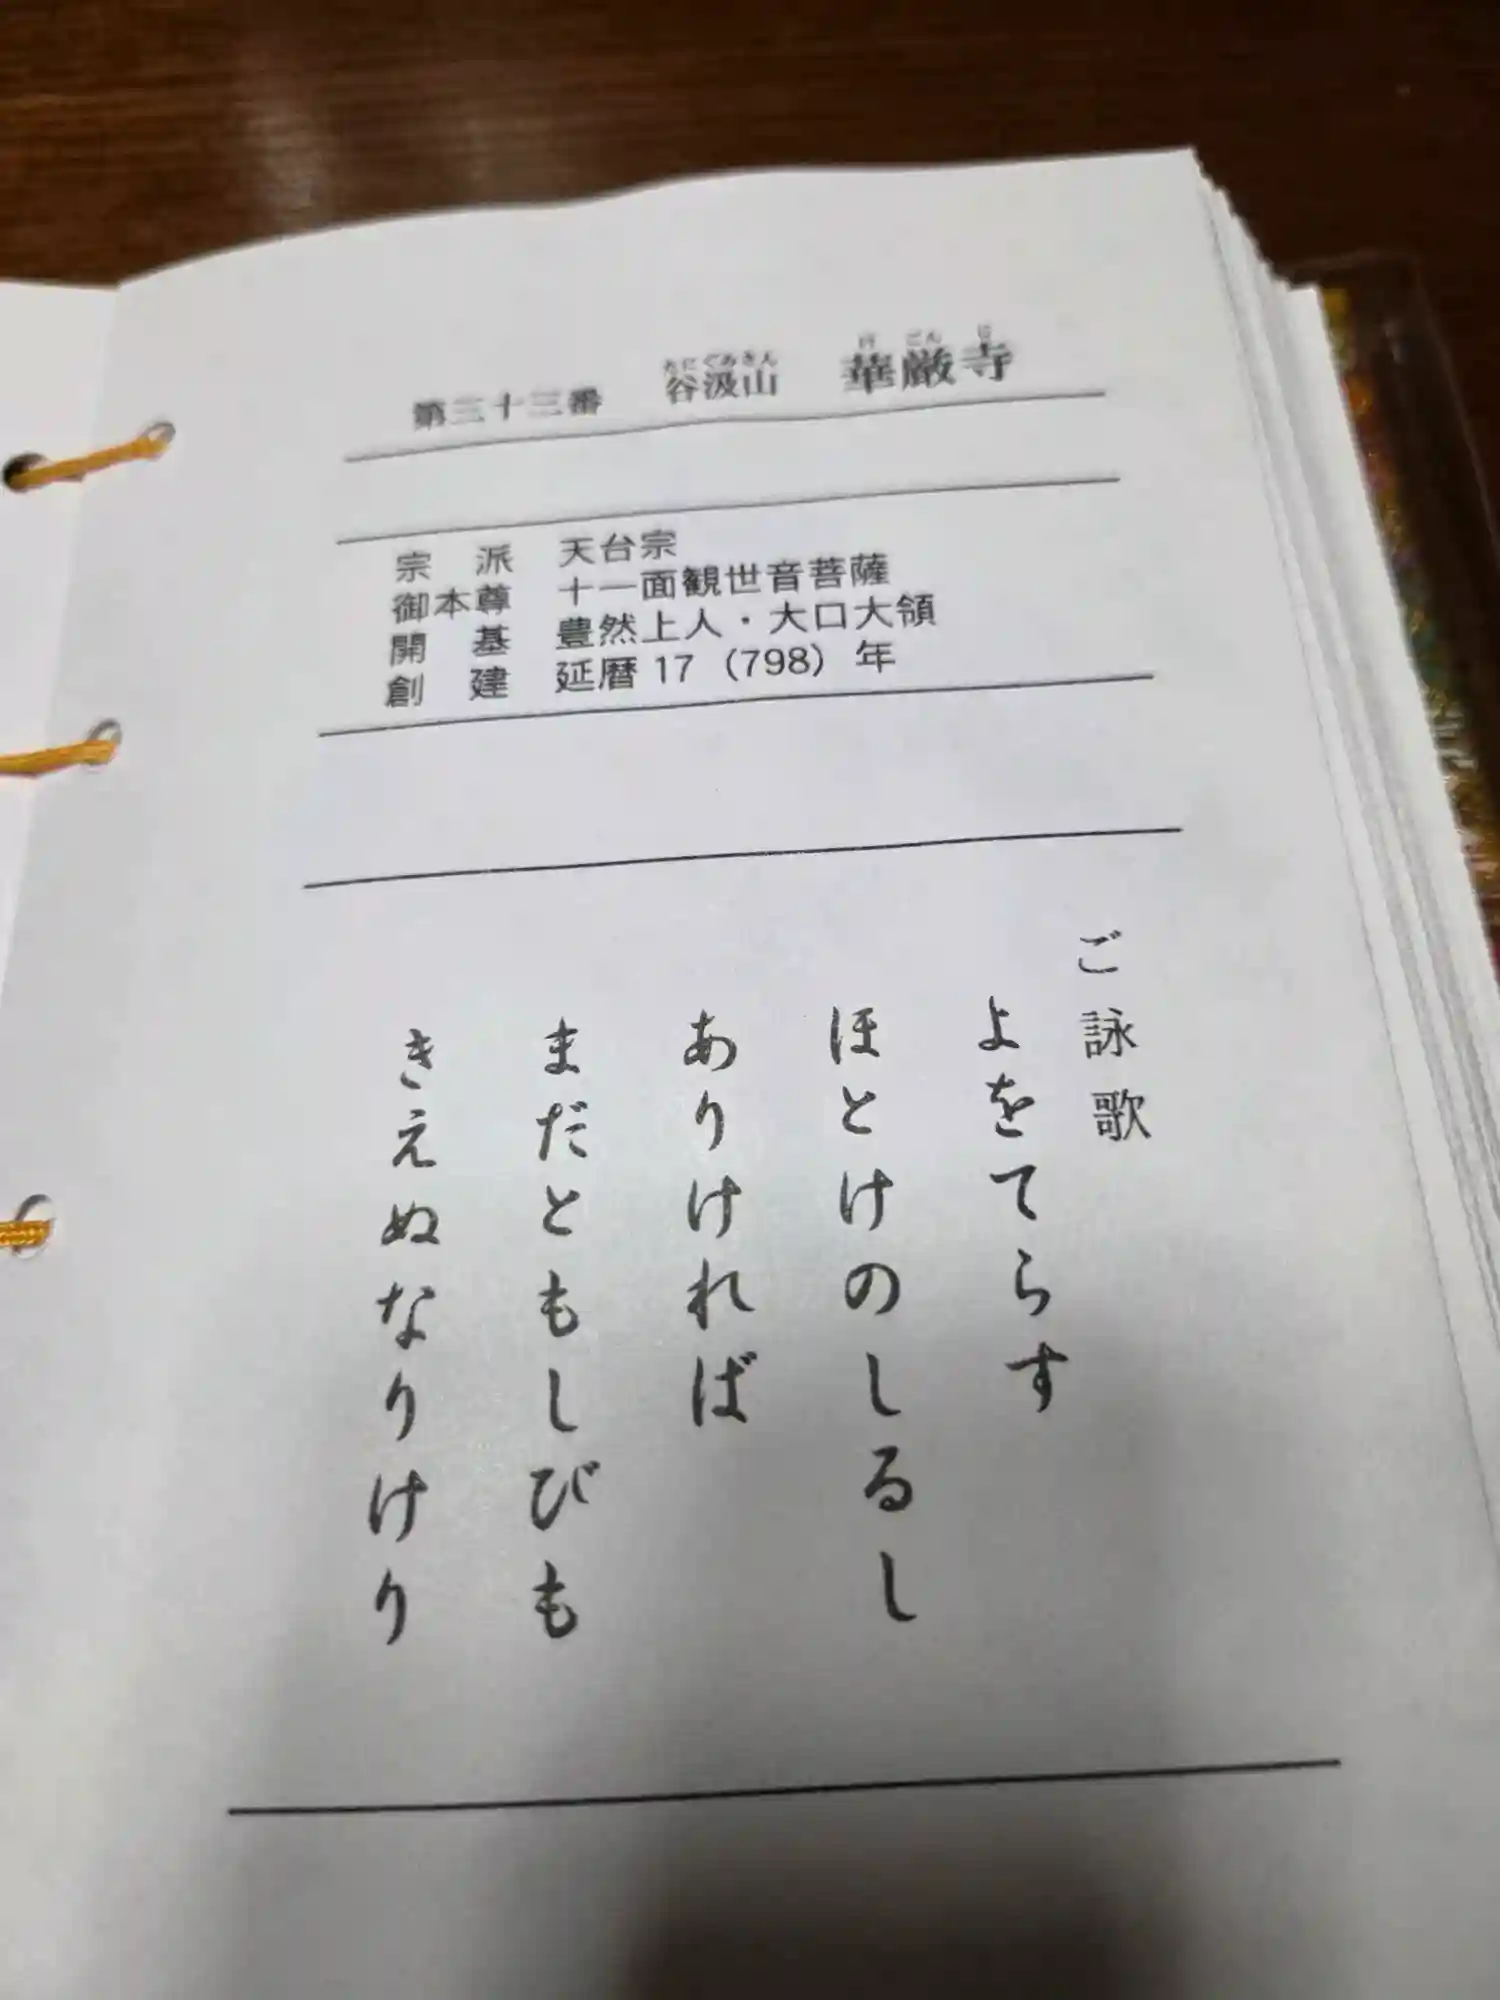 第三十三番 谷汲山 華厳寺
たにぐみさん けごんじ
宗派 天台宗
御本尊 十一面観世音菩薩
開基 豊然上人・大口大領
創建 延暦17(798)年
ご詠歌
よをてらす
ほとけのしるし
ありければ
まだともしびも
きえぬなりけり